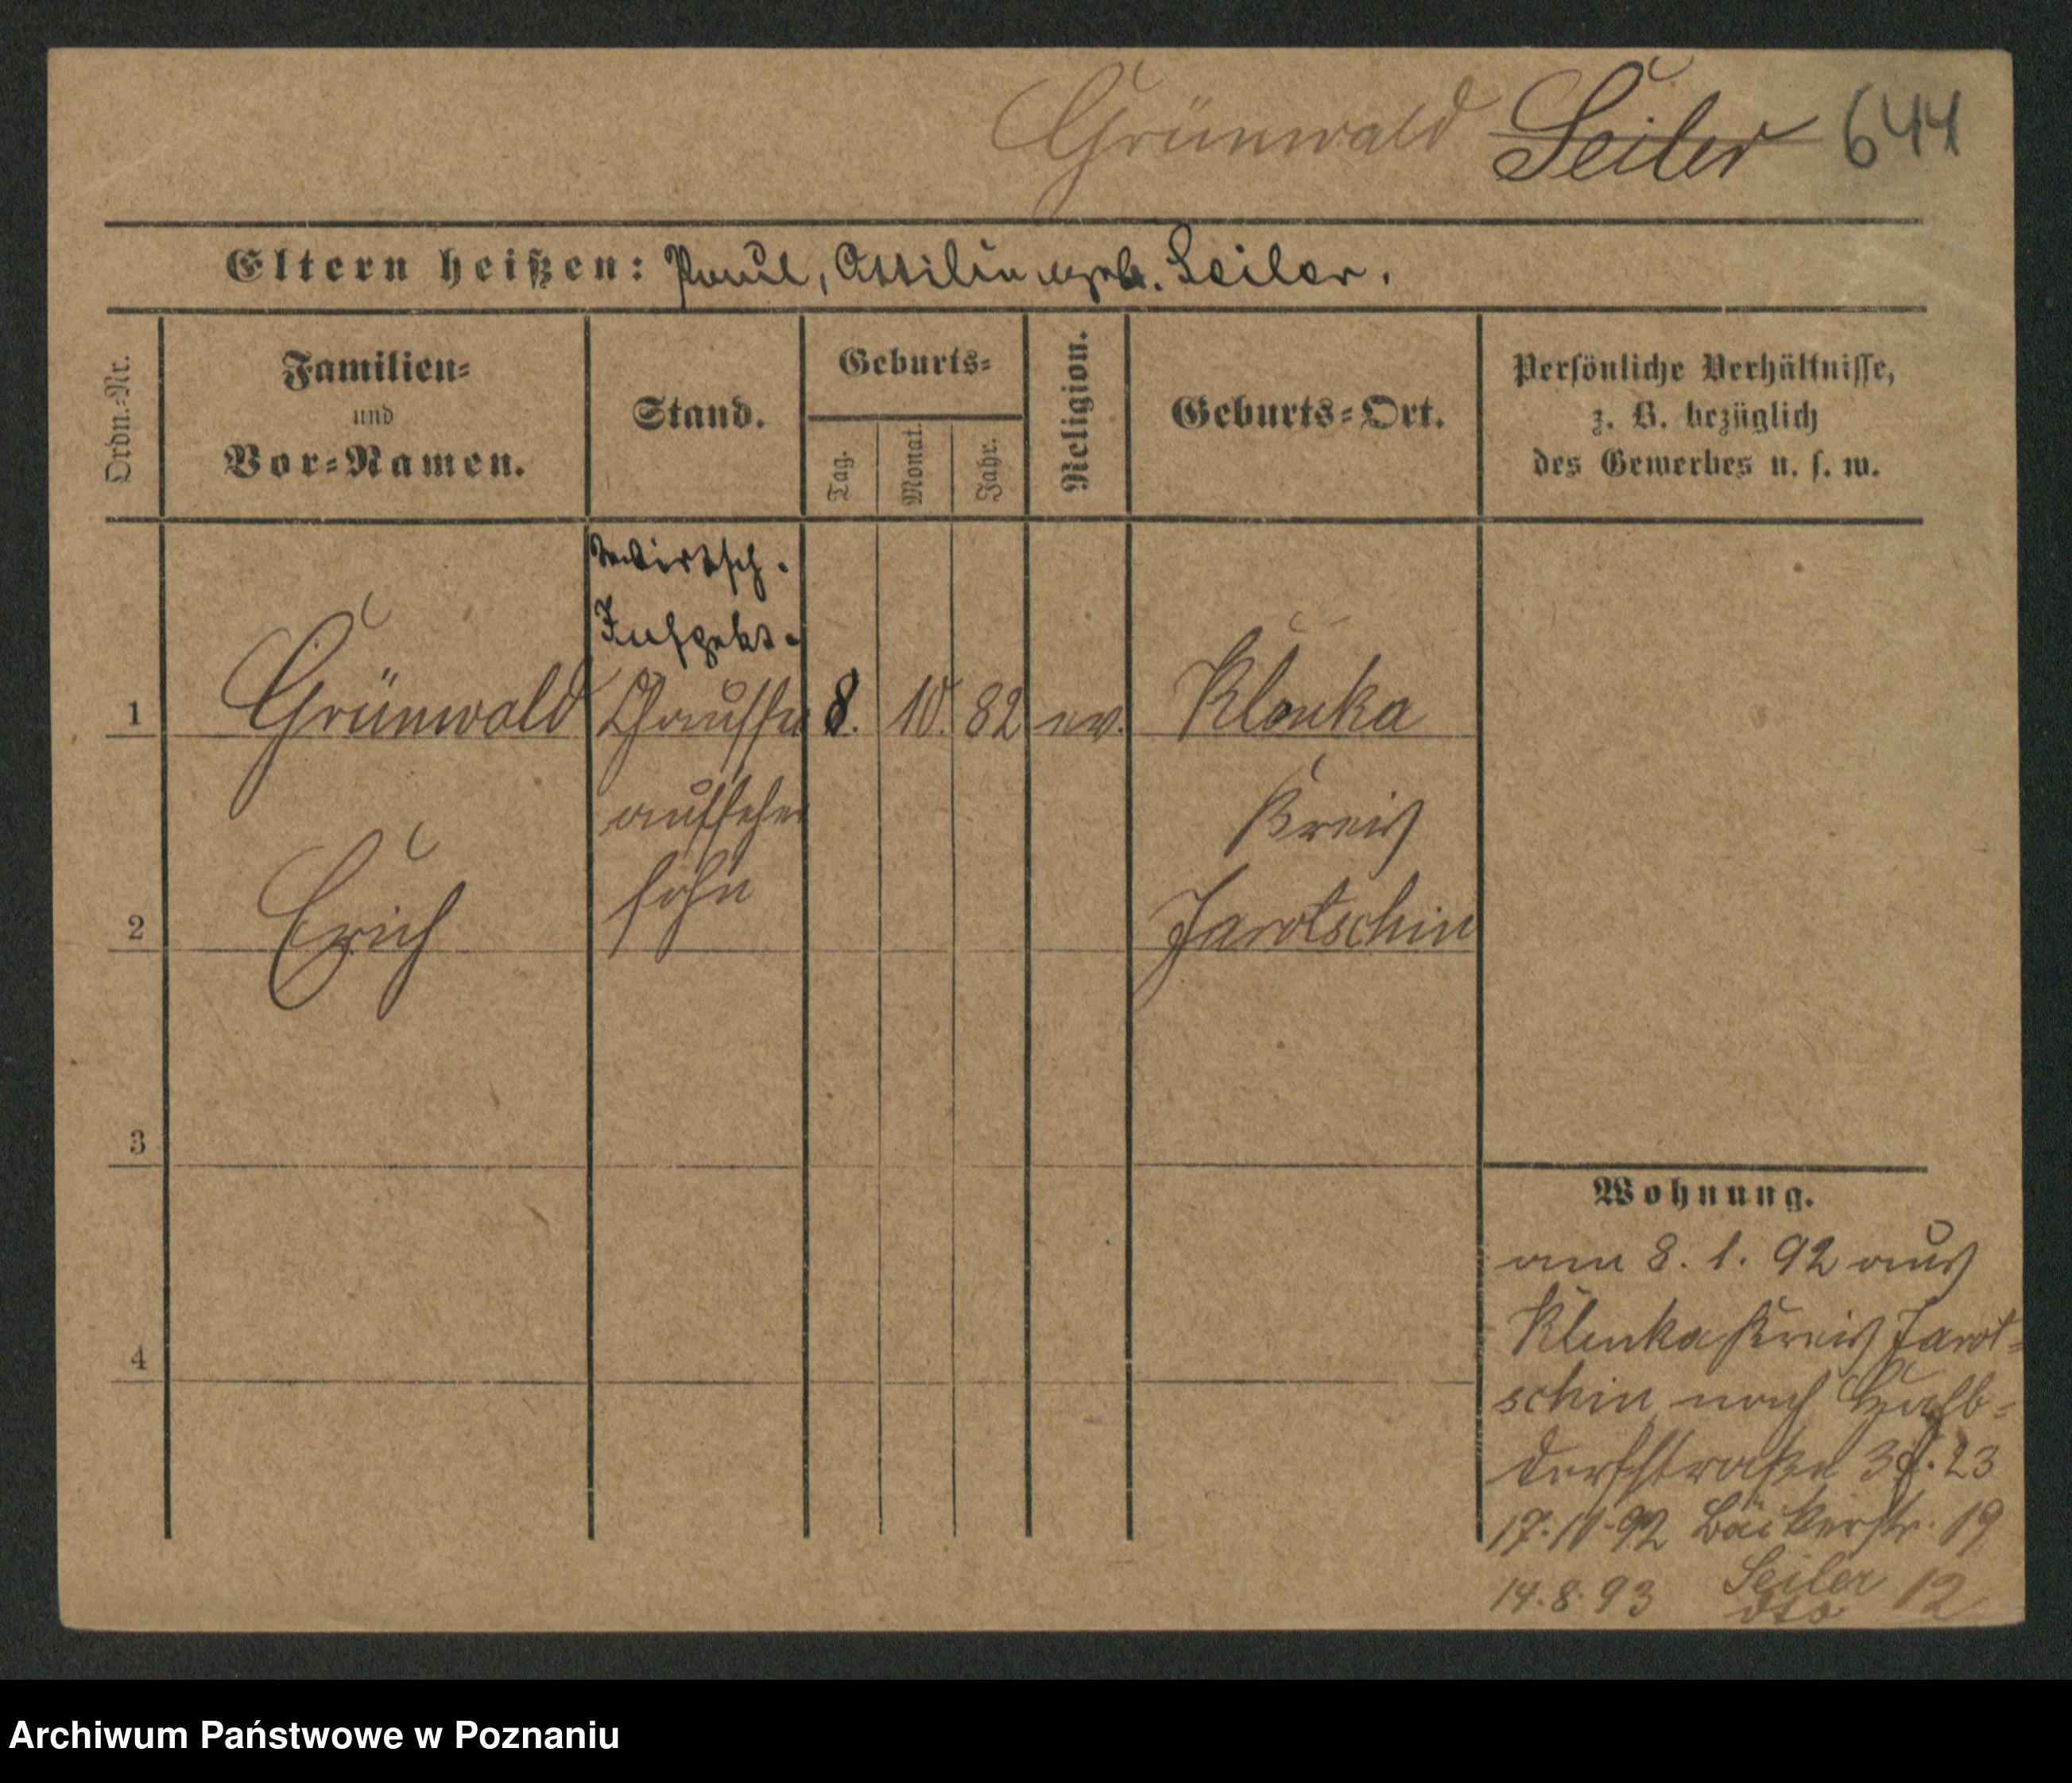 Grünwald Seiler 644
Eltern heißen: Paul, Ottilie geb. Seiler.
Ordn.-Nr.
Familien-
und
Vor-Namen.
Stand.
Geburts-
Tag.
Monat.
Jahr.
Religion.
Geburts-Ort.
Persönliche Verhältnisse,
z. B. bezüglich
des Gewerbes u. s. w.
Wirtsch.
Inspekt.
1 Grünwald Chaussee 8. 10. 82 ev. Klenka
aufseher Kreis
2 Erich sohn Jarotschin
3
4
Wohnung.
am 8. 1. 92 aus
Klenka Kreis Jarot-
schin nach Halb-
dorfstraße 23
17.11.92 Bäckerstr. 19
Seiler
14.8.93 dto 12
Archiwum Państwowe w Poznaniu